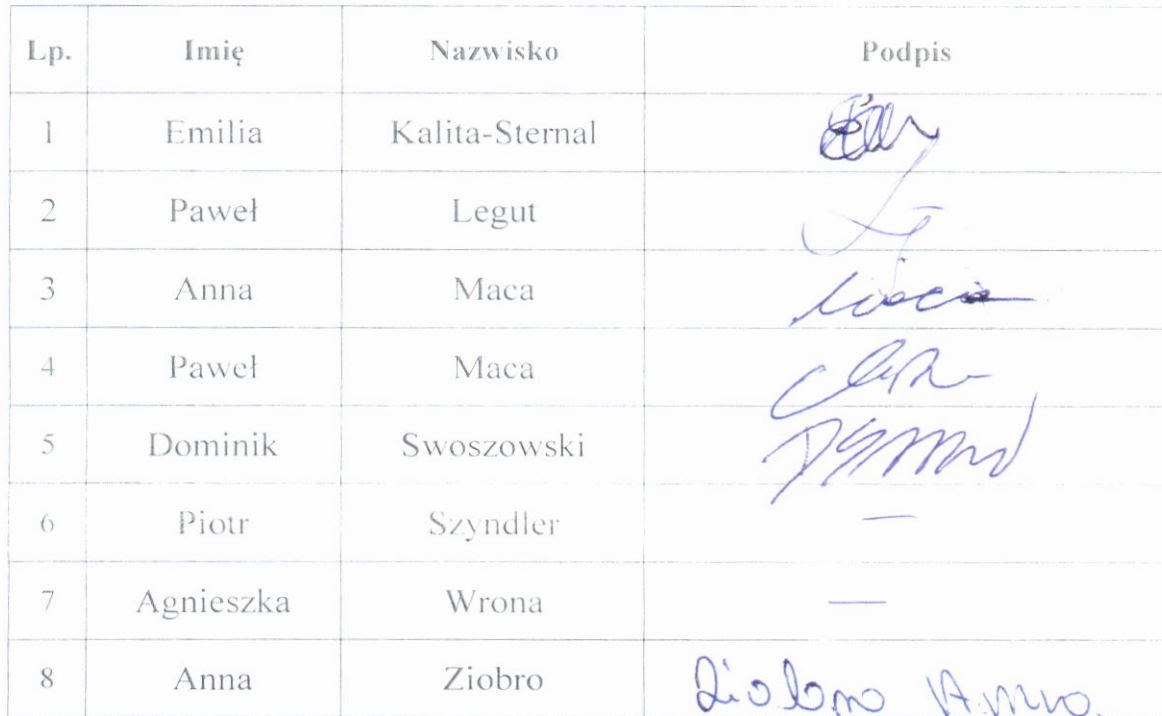 Lp. Imię Nazwisko Podpis
1 Emilia Kalita-Sternal
2 Paweł Legut
3 Anna Maca
4 Paweł Maca
5 Dominik Swoszowski
6 Piotr Szyndler —
7 Agnieszka Wrona —
8 Anna Ziobro Ziobro Anna